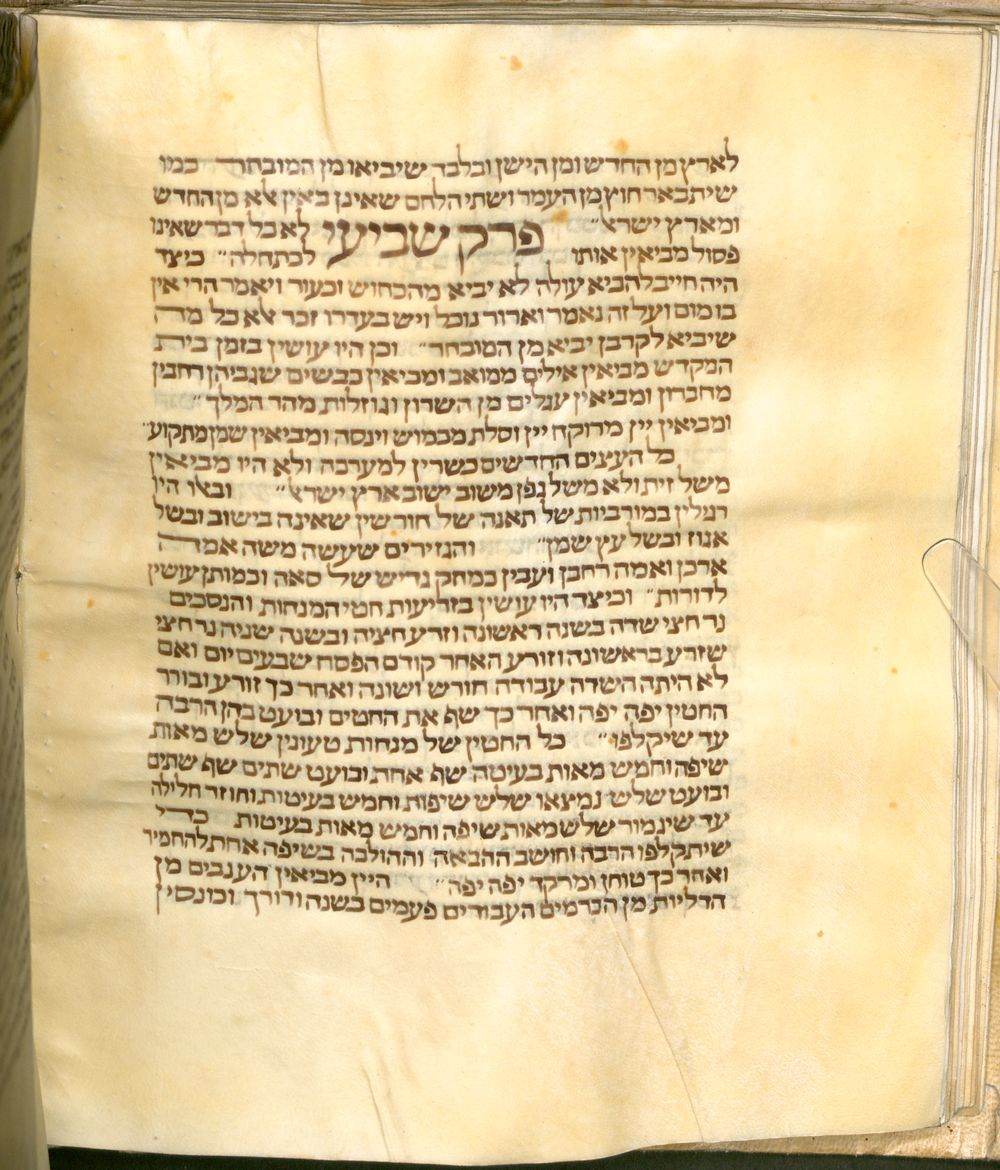 לארץ מן החדש ומן הישן ובלבד שיביאו מן המובחר כמו
שיתבאר חוץ מן העמר ושתי הלחם שאינן באין אלא מן החדש
ומארץ ישראל״ פרק שביעי לא כל דבר שאינו
פסול מביאין אותו לכתחלה״ כיצד
היה חייב להביא עולה לא יביא מהכחוש וכעור ויאמר הרי אין
בו מום ועל זה נאמר וארור נוכל ויש בעדרו זכר אלא כל מה
שיביא לקרבן יביא מן המובחר״ וכן היו עושין בזמן בית
המקדש מביאין אילים ממואב ומביאין כבשים שגביהן רחבין
מחברון ומביאין עגלים מן השרון וגוזלות מהר המלך״
ומביאין יין מרוקח יין וסלת מכמוש וינסה ומביאין שמן מתקוע״
כל העצים החדשים כשרין למערכה ולא היו מביאין
משל זית ולא משל גפן משוב ישוב ארץ ישראל״ ובאו היו
רגילין במורביות של תאנה של חורשין שאינה בישוב ובשל
אגוז ובשל עץ שמן״ והגזירים שעשה משה אמה
ארכן ואמה רחבן ועבין כמחק גדיש של סאה וכמותן עושין
לדורות״ וכיצד היו עושין בזריעות חטי המנחות והנסכים
נר חצי שדה בשנה ראשונה וזרע חציה ובשנה שניה נר חצי
שזרע בראשונה וזורע האחר קודם הפסח שבעים יום ואם
לא היתה השדה עבודה חורש ושונה ואחר כך זורע ובורר
החטין יפה יפה ואחר כך שף את החטים ובועט בהן הרבה
עד שיקלפו״ כל החטין של מנחות טעונין שלש מאות
שיפה וחמש מאות בעיטה שף אחת ובועט שתים שף שתים
ובועט שלש נמצאו שלש שיפות וחמש בעיטות וחוזר חלילה
עד שיגמור שלש מאות שיפה וחמש מאות בעיטות כדי
שיתקלפו הרבה וחושב ההבאה וההולכה בשיפה אחת להחמיר
ואחר כך טוחן ומרקד יפה יפה״ היין מביאין הענבים מן
הדליות מן הכרמים העבודים פעמים בשנה ודורך וכונסין